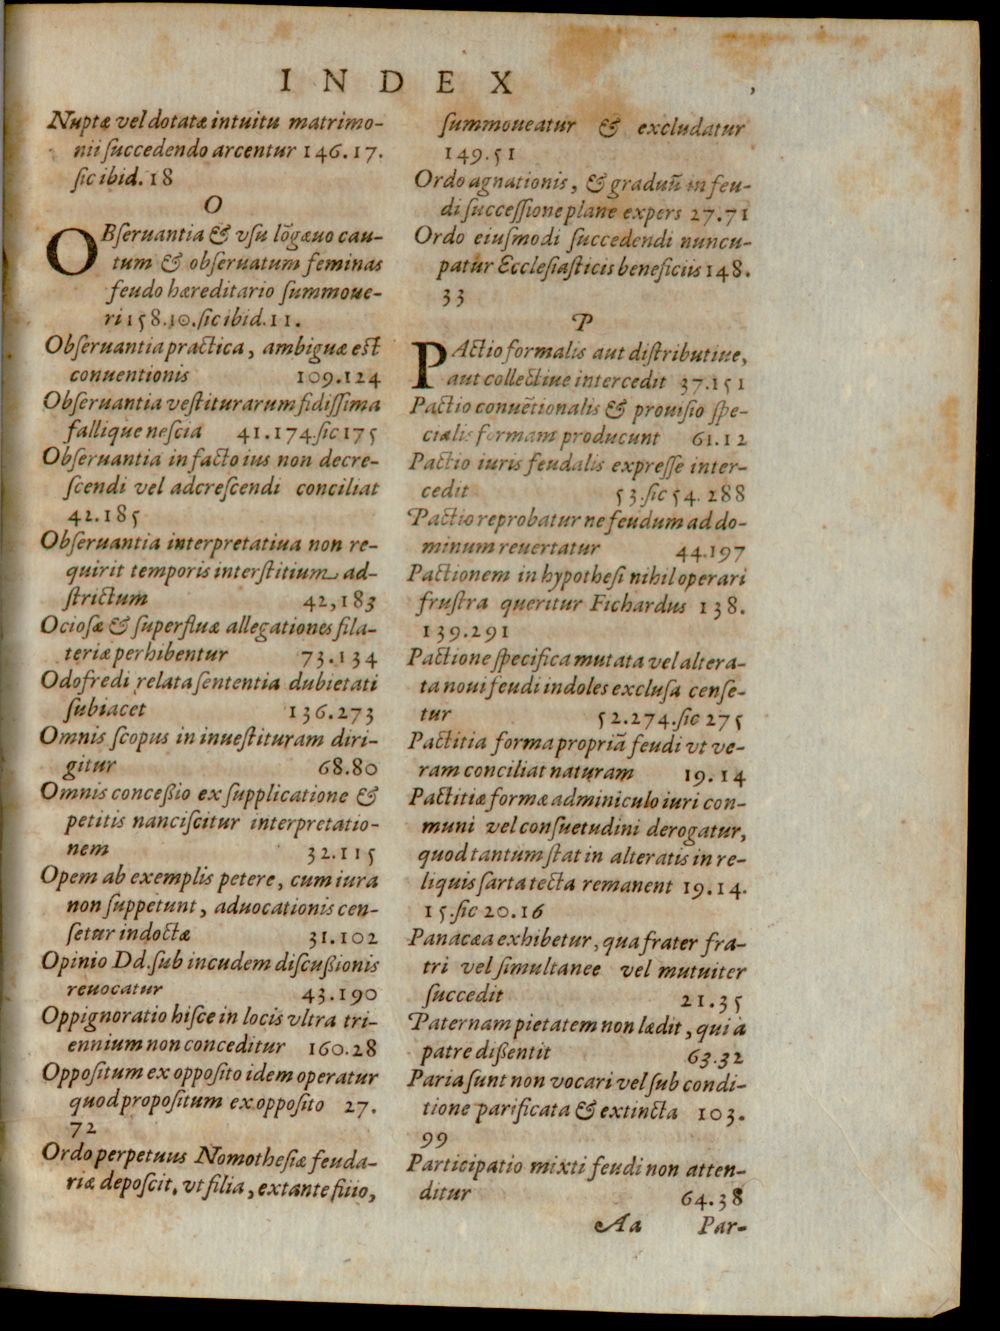 INDEX
Nuptæ vel dotatæ intuitu matrimo-
nii succedendo arcentur 146.17.
sic ibid. 18
O
OBseruantia & vsu lõgæuo cau-
tum & obseruatum feminas
feudo hæreditario summoue-
ri 158.10. sic ibid. 11.
Obseruantia practica, ambiguæ est
conuentionis 109.124
Obseruantia vestiturarum fidissima
fallique nescia 41.174 sic 175
Obseruantia in facto ius non decre-
scendi vel adcrescendi conciliat
42.185
Obseruantia interpretatiua non re-
quirit temporis interstitium ad-
strictum 42,183
Ociosæ & superfluæ allegationes fila-
teriæ perhibentur 73.134
Odofredi relata sententia dubietati
subiacet 136.273
Omnis scopus in inuestituram diri-
gitur 68.80
Omnis conceßio ex supplicatione &
petitis nanciscitur interpretatio-
nem 32.115
Opem ab exemplis petere, cum iura
non suppetunt, aduocationis cen-
setur indoctæ 31.102
Opinio Dd. sub incudem discußionis
reuocatur 43.190
Oppignoratio hisce in locis vltra tri-
ennium non conceditur 160.28
Oppositum ex opposito idem operatur
quod propositum ex opposito 27.
72
Ordo perpetuus Nomothesiæ feuda-
riæ deposcit, vt filia, extante filio,
summoueatur & excludatur
149.51
Ordo agnationis, & graduũ in feu-
di successione plane expers 27.71
Ordo eiusmodi succedendi nuncu-
patur Ecclesiasticis beneficiis 148.
33
P
PActio formalis aut distributiue,
aut collectiue intercedit 37.151
Pactio conuẽtionalis & prouisio spe-
cialis formam producunt 61.12
Pactio iuris feudalis expresse inter-
cedit 53. sic 54. 288
Pactio reprobatur ne feudum ad do-
minum reuertatur 44.197
Pactionem in hypothesi nihil operari
frustra queritur Fichardus 138.
139.291
Pactione specifica mutata vel altera-
ta noui feudi indoles exclusa cense-
tur 52.274. sic 275
Pactitia forma propriã feudi vt ve-
ram conciliat naturam 19.14
Pactitiæ formæ adminiculo iuri con-
muni vel consuetudini derogatur,
quod tantum stat in alteratis in re-
liquis sarta tecta remanent 19.14.
15. sic 20.16
Panacæa exhibetur, qua frater fra-
tri vel simultanee vel mutuiter
succedit 21.35
Paternam pietatem non lædit, qui à
patre dißentit 63.32
Paria sunt non vocari vel sub condi-
tione parificata & extincta 103.
99
Participatio mixti feudi non atten-
ditur 64.38
Aa Par-